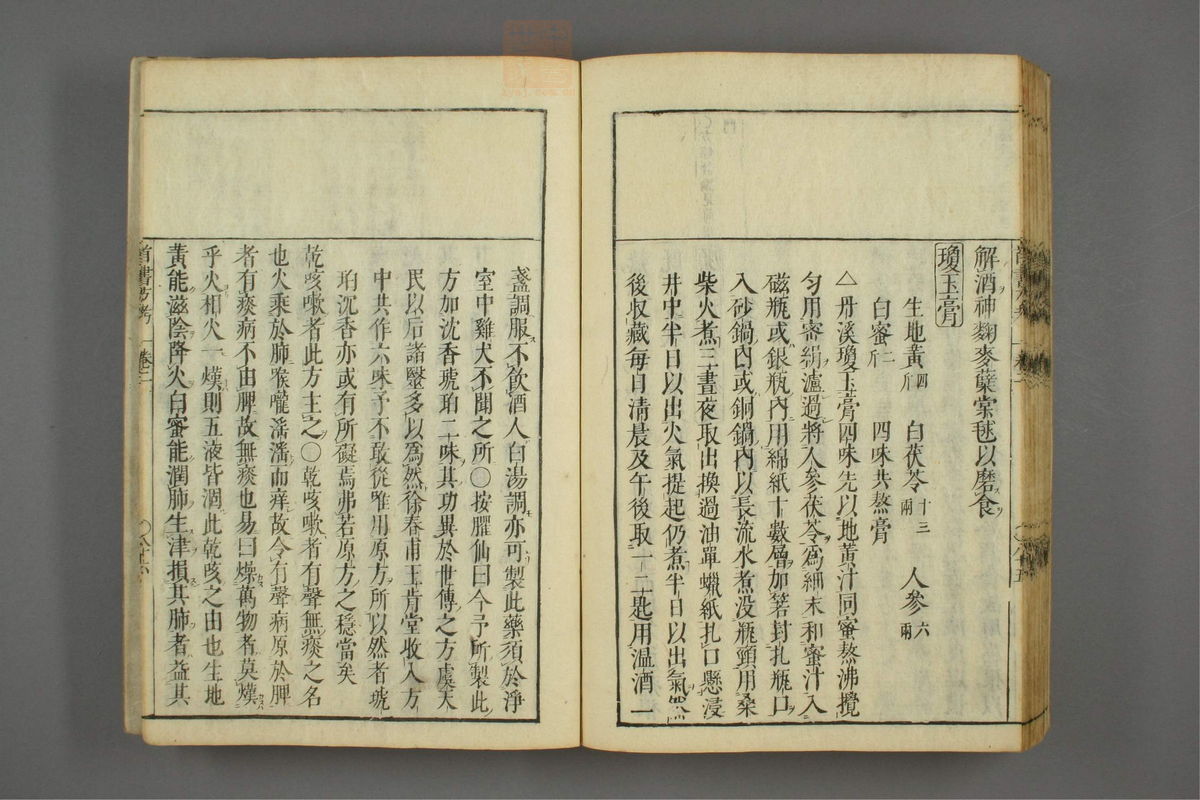 解酒神麴麥蘗棠毬以磨食
瓊玉膏
生地黃四斤 白茯苓十三兩 人參六兩
白蜜二斤 四味共熬膏
△丹溪瓊玉膏四味先以地黃汁同蜜熬沸攪
勻用密絹濾過將人參茯苓爲細末和蜜汁入
磁瓶或銀瓶內用綿紙十數層加箬封扎瓶口
入砂鍋內或銅鍋內以長流水煮没瓶頭用桑
柴火煮三晝夜取出換過油單蠟紙扎口懸浸
井中半日以出火氣提起仍煮半日以出氣然
後収藏每日清晨及午後取一二匙用温酒一
盞調服不飲酒人白湯調亦可製此藥須於淨
室中雞犬不聞之所○按臞仙曰今予所製此
方加沈香琥珀二味其功異於世傳之方虞天
民以后諸醫多以爲然徐春甫王肯堂收入方
中共作六味予不敢從唯用原方所以然者琥
珀沉香亦或有所礙焉弗若原方之穩當矣
乾咳嗽者此方主之○乾咳嗽者有聲無痰之名
也火乘於肺喉嚨淫淫而痒故令有聲病原於脾
者有痰病不由脾故無痰也易曰燥萬物者莫熯
乎火相火一熯則五液皆涸此乾咳之由也生地
黃能滋陰降火白蜜能潤肺生津損其肺者益其
首書方考 卷二 八十六